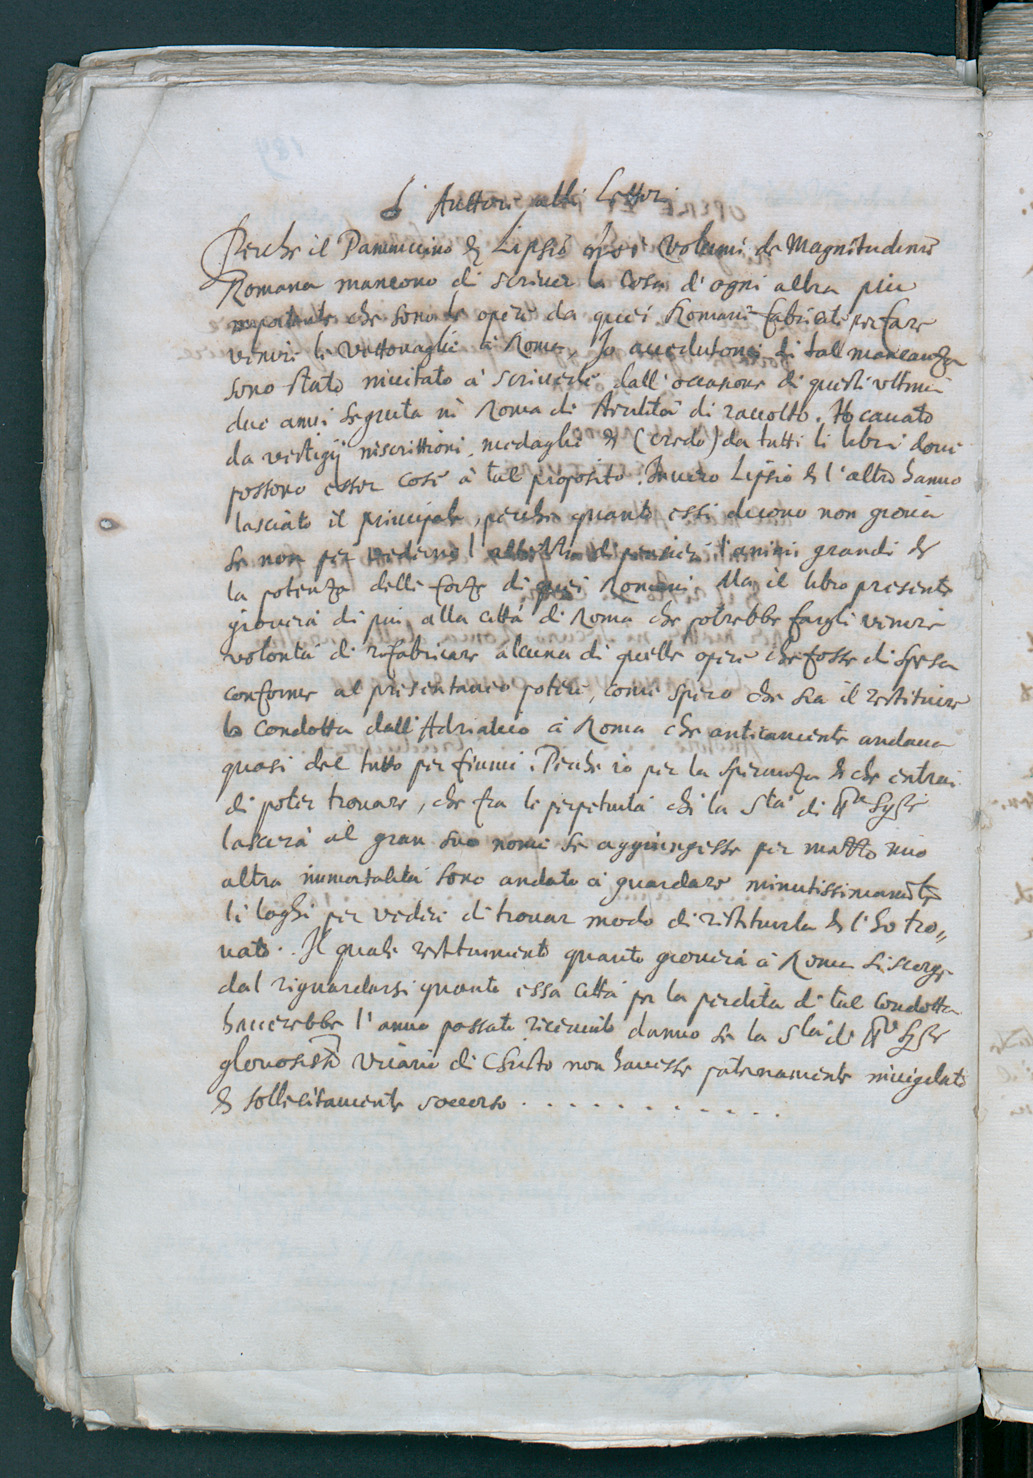 L'Auttore alli Lettori
Perche il Panuuino & Lipsio ne i Volumi de Magnitudine
Romana mancono di scriuer la cosa d'ogni altra piu
importante che sono le opere da quei Romani fabricate per fare
venire le Vettouaglie à Roma, Io auedutomi di tal mancanza
sono stato inuitato à scriuerle dall'occasione di questi vltimi
due anni seguita in Roma di sterilità di raccolto. Ho cauato
da vestigij inscrittioni, medaglie & (credo) da tutti li libri doue
possono esser cose à tal proposito. Inuero Lipsio & l'altro hanno
lasciato il principale, perche quanto essi dicono non gioua
se non per vedersi l' di pensieri l'animi grandi &
la potenza delle forze di quei Romani. Ma il libro presente
giouerà di piu, alla città di Roma che potrebbe fargli venire
volontà di rifabricare alcuna di quelle opere che fosse di spesa
conforme al presentaneo potere, come spero che sia il restituire
la condotta dall'Adriatico à Roma che anticamente andaua
quasi del tutto per fiumi. Perche io per la speranza & che entrai
di poter trouare, che fra le perpetuità che la Stà di
lascierà al gran suo nome se aggiungesse per mezzo mio
altra immortalità sono andato à guardare minutissimamte
li loghi per vedere di trouar modo di restituirla & l'ho tro„
uato. Il quale restituimento quanto giouerà à Roma si scorge
dal riguardarsi quanto essa città per la perdita di tal condotta
hauerebbe l'anno passato riceuuto danno se la Stà di
gloriosissmo Vicario di Christo non hauesse paternamente inuigilato
& sollecitamente soccorso . . . . . . . . . . . .